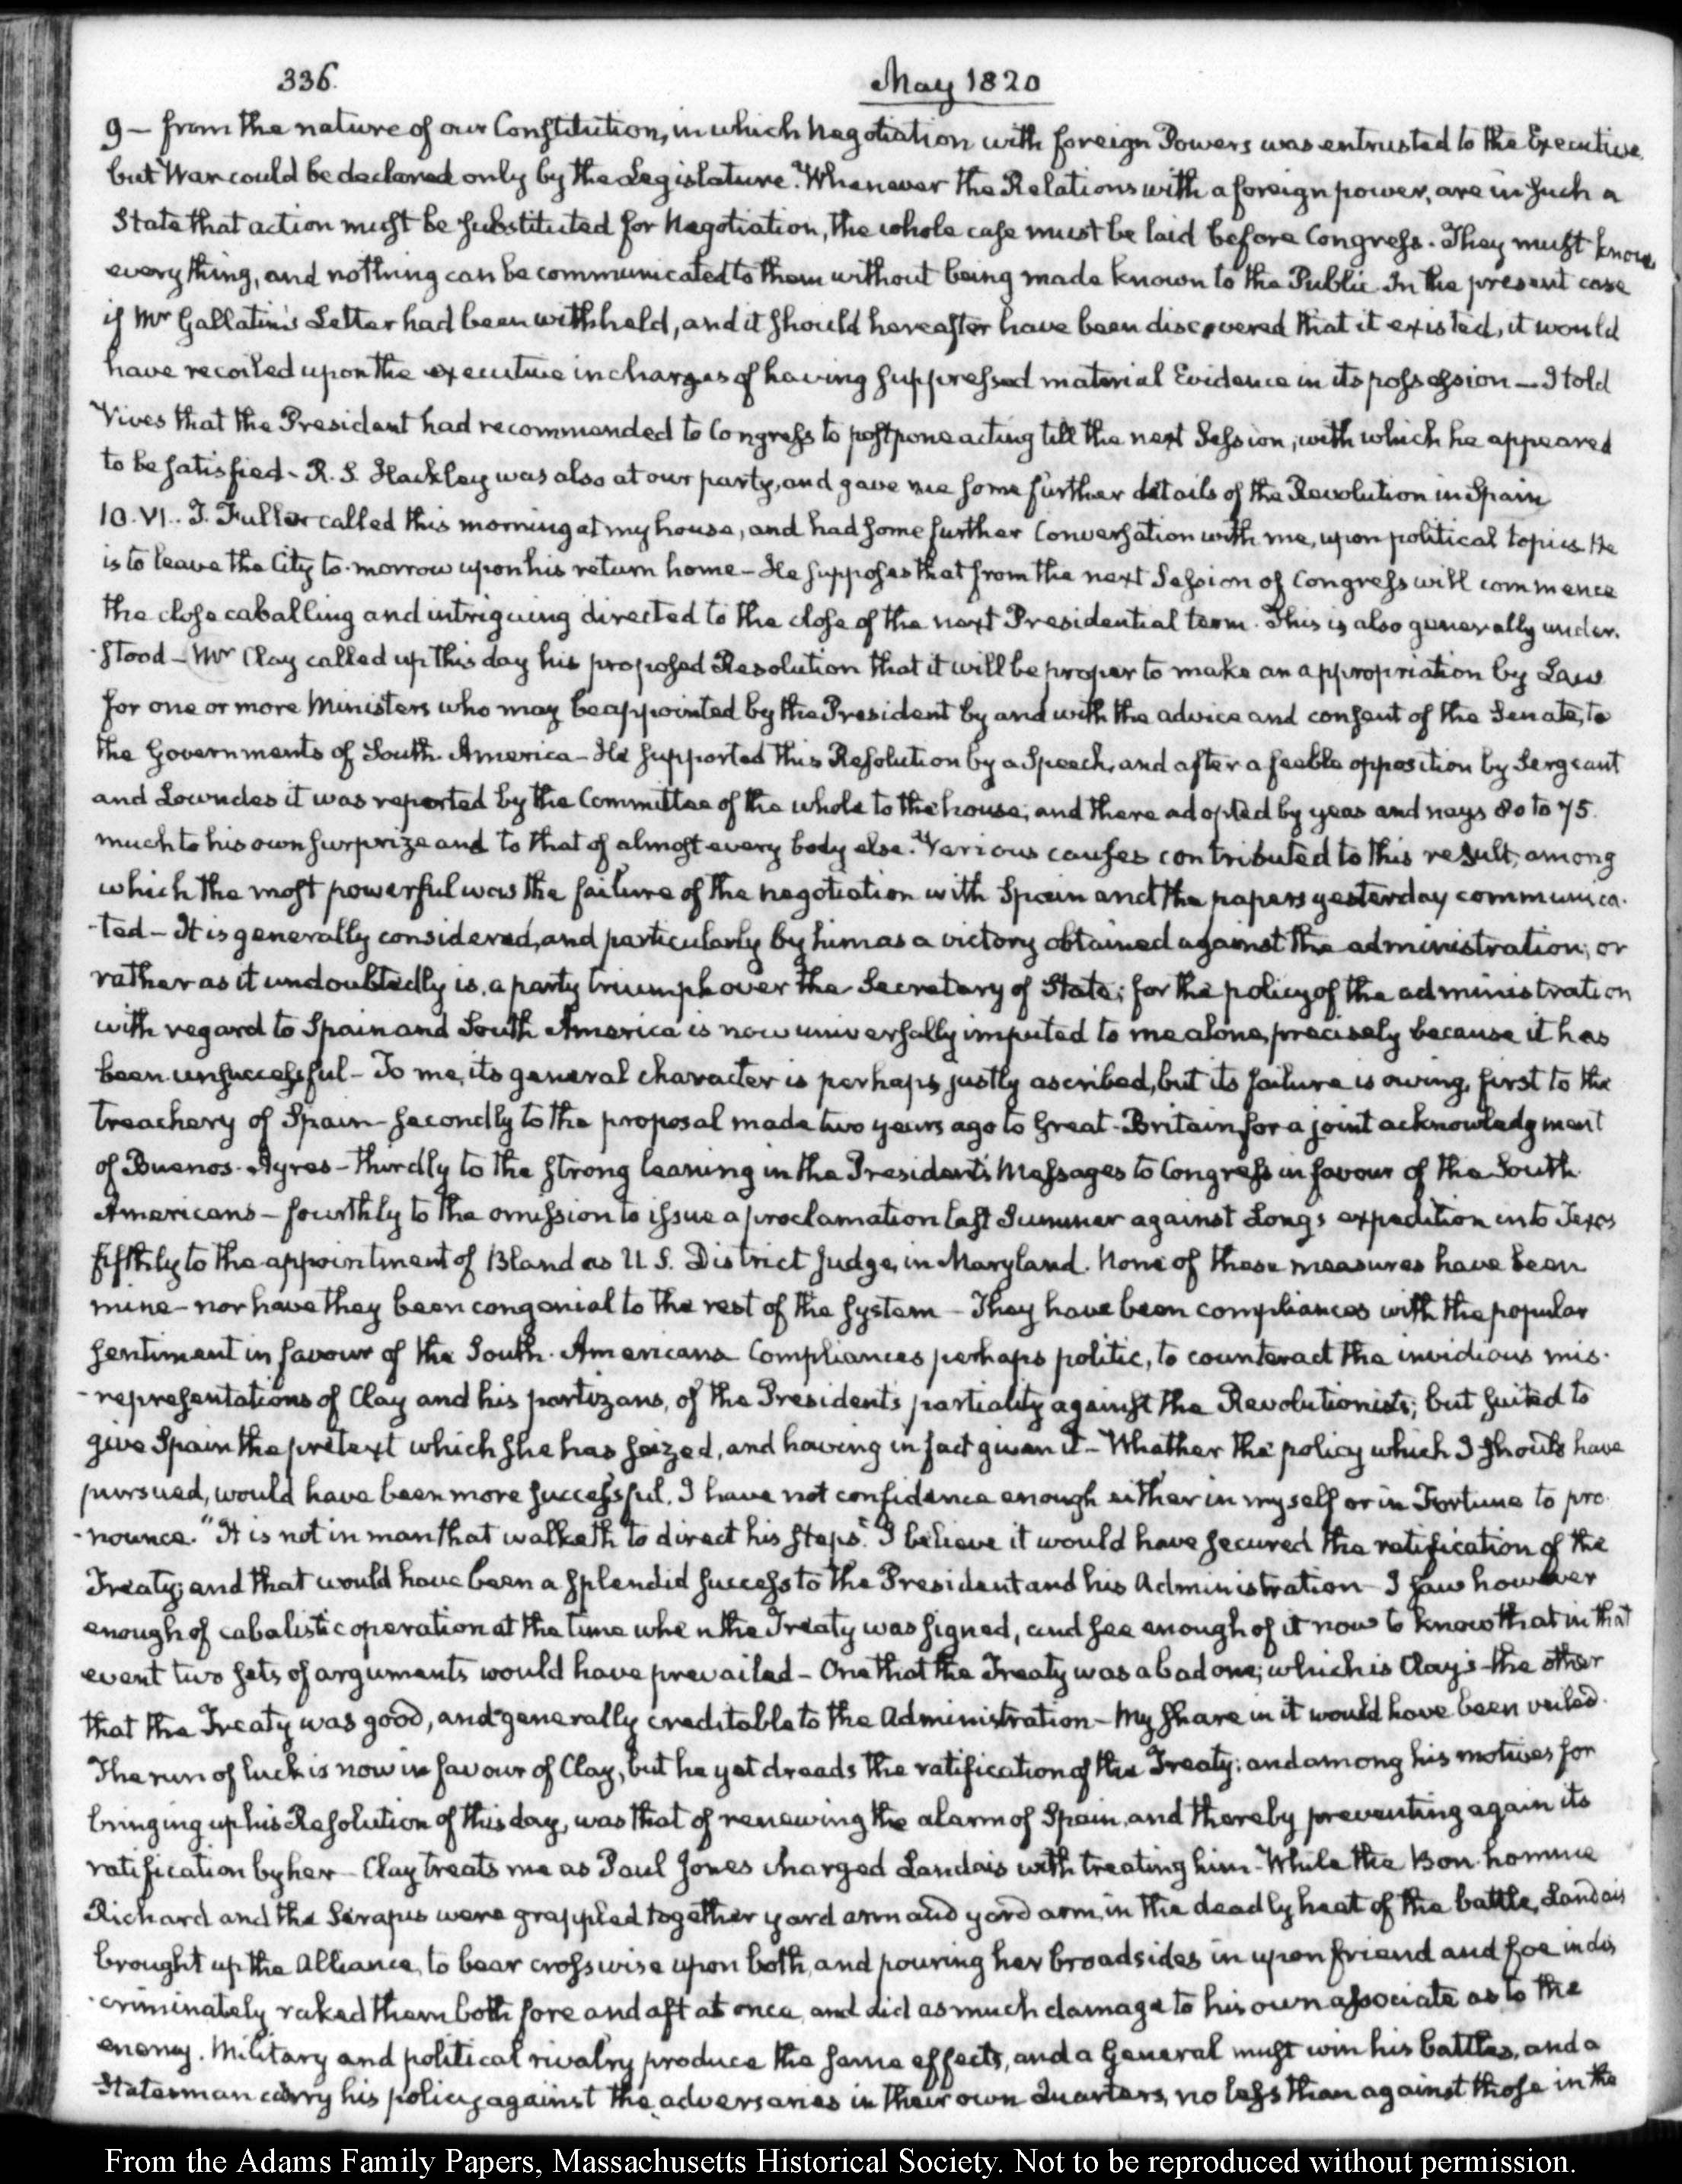 336.
May 1820
9 — from the nature of our Constitution, in which Negotiation with foreign Powers was entrusted to the Executive,
but War could be declared only by the Legislature. Whenever the Relations with a foreign power, are in such a
State that action must be substituted for Negotiation, the whole case must be laid before Congress. They must know
every thing, and nothing can be communicated to them without being made known to the Public. In the present case
if Mr Gallatin's Letter had been withheld, and it should hereafter have been discovered that it existed, it would
have recoiled upon the executive in charges of having suppressed material Evidence in its possession — I told
Vives that the President had recommended to Congress to postpone acting till the next Session, with which he appeared
to be satisfied - R. S. Hackley was also at our party, and gave me some further details of the Revolution in Spain
10. VI.. T. Fuller called this morning at my house, and had some further Conversation with me, upon political topics. He
is to leave the City to-morrow upon his return home - He supposes that from the next Session of Congress will commence
the close caballing and intriguing directed to the close of the next Presidential term. This is also generally under-
-stood - Mr Clay called up this day his proposed Resolution that it will be proper to make an appropriation by Law
for one or more Ministers who may be appointed by the President by and with the advice and consent of the Senate, to
the Governments of South-America - He supported this Resolution by a Speech, and after a feeble opposition by Sergeant
and Lowndes it was reported by the Committee of the whole to the house, and there adopted by yeas and nays 80 to 75.
much to his own surprize and to that of almost every body else. Various causes contributed to this result, among
which the most powerful was the failure of the negotiation with Spain and the papers yesterday communica-
-ted - It is generally considered, and particularly by him as a victory obtained against the administration, or
rather as it undoubtedly is, a party triumph over the Secretary of State; for the policy of the administration
with regard to Spain and South America is now universally imputed to me alone, precisely because it has
been unsuccessful - To me, its general character is perhaps, justly ascribed, but its failure is owing, first to the
treachery of Spain - secondly to the proposal made two years ago to Great-Britain for a joint acknowledgment
of Buenos-Ayres - thirdly to the strong leaning in the President's Messages to Congress in favour of the South-
Americans - fourthly to the omission to issue a proclamation last Summer against Long's expedition into Texas
fifthly to the appointment of Bland as U S. District Judge, in Maryland. None of these measures have been
mine - nor have they been congenial to the rest of the system - They have been compliances with the popular
sentiment in favour of the South-Americans Compliances perhaps politic, to counteract the invidious mis-
-representations of Clay and his partizans, of the President's partiality against the Revolutionists; but suited to
give Spain the pretext which she has seized, and having in fact given it - Whether the policy which I should have
pursued, would have been more successful, I have not confidence enough either in myself or in Fortune to pro-
-nounce. "It is not in man that walketh to direct his steps." I believe it would have secured the ratification of the
Treaty; and that would have been a splendid success to the President and his Administration - I saw however
enough of cabalistic operation at the time when the Treaty was signed, and see enough of it now to know that in that
event two sets of arguments would have prevailed - One that the Treaty was a bad one; which is Clay's - the other
that the Treaty was good, and generally creditable to the Administration - My share in it would have been veiled.
The run of luck is now in favour of Clay, but he yet dreads the ratification of the Treaty; and among his motives for
bringing up his Resolution of this day, was that of renewing the alarm of Spain, and thereby preventing again its
ratification by her - Clay treats me as Paul Jones charged Landais with treating him - While the Bon-homme
Richard and the Serapis were grappled together yard arm and yard arm, in the deadly heat of the battle, Landais
brought up the Alliance, to bear crosswise upon both, and pouring her broadsides in upon friend and foe indis
-criminately raked them both fore and aft at once, and did as much damage to his own associate as to the
enemy. Military and political rivalry produce the same effects, and a General must win his battles, and a
Statesman carry his policy against the adversaries in their own Quarters, no less than against those in the
From the Adams Family Papers, Massachusetts Historical Society. Not to be reproduced without permission.